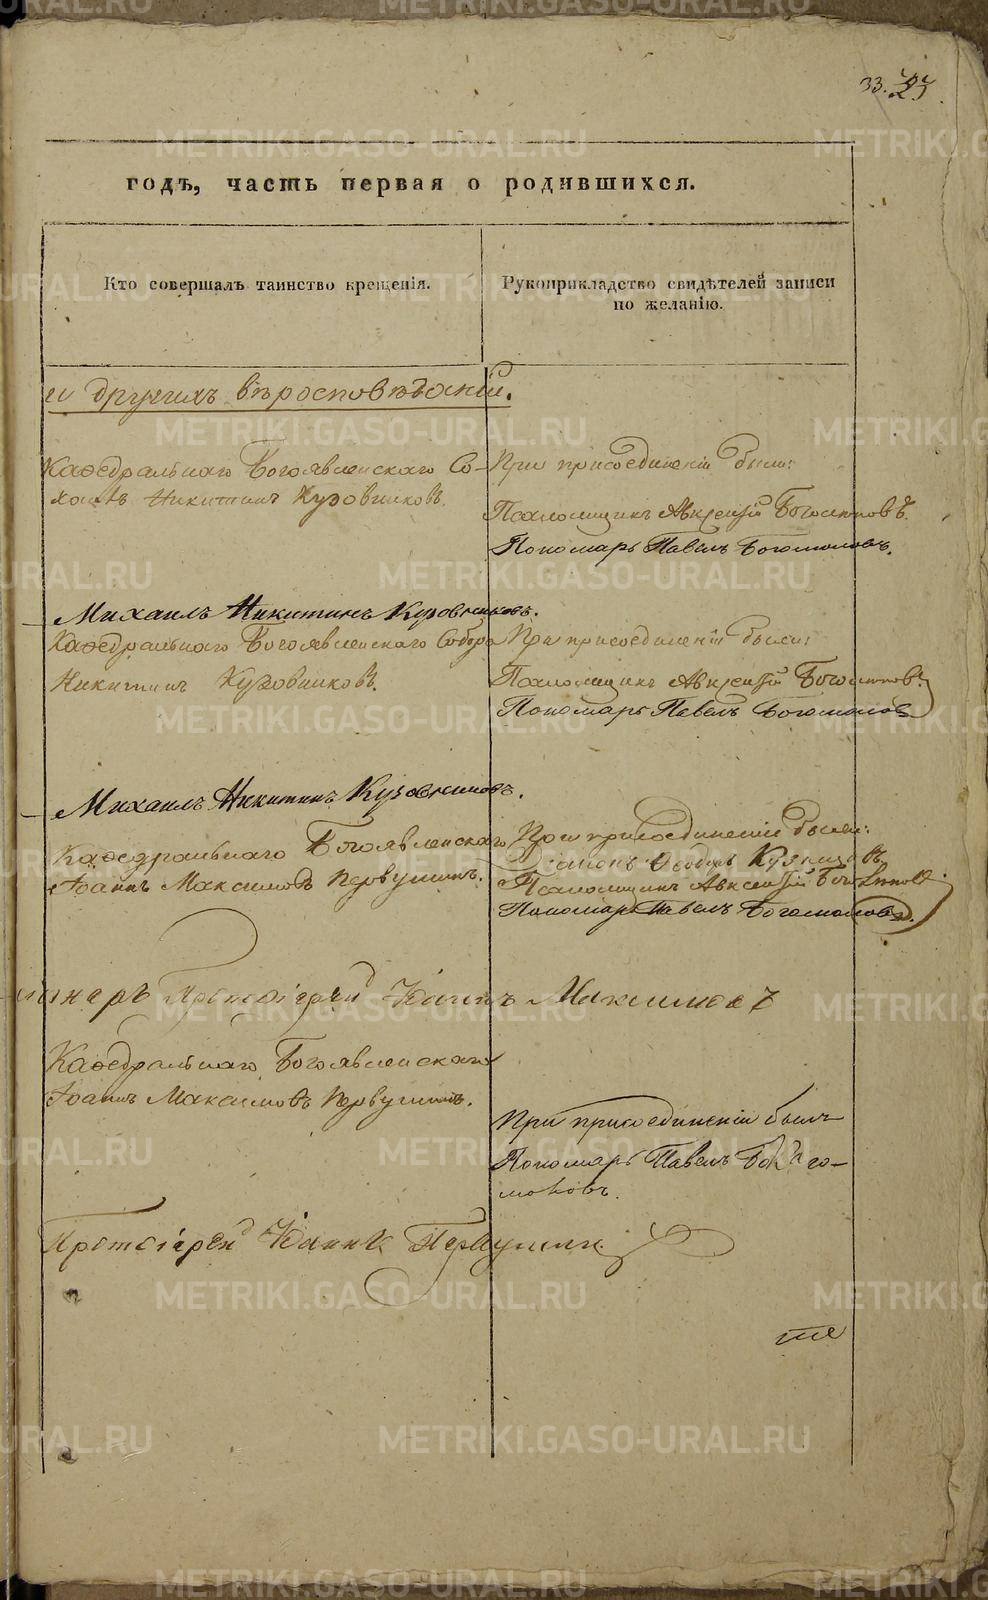 33.
годъ, часть первая о родившихся.
Кто совершалъ таинство крещенія.
Рукоприкладство свидѣтелей записи
по желанію.
и другихъ вѣроисповѣданій.
Каѳедральнаго Богоявленскаго Со-
Никитинъ Кузовниковъ.
При присоединеніи были:
Псаломщикъ Авксентій
Пономарь Павелъ Богомоловъ.
Михаилъ Никитинъ Кузовниковъ.
Каѳедральнаго Богоявленскаго Собора
Никитинъ Кузовниковъ.
При присоединеніи были:
Псаломщикъ Авксентій
Пономарь Павелъ Богомоловъ
Михаилъ Никитинъ Кузовниковъ.
Каѳедральнаго Богоявленскаго
Іоаннъ Максимовъ Первушинъ.
При присоединеніи были:
Діаконъ Ѳеодоръ Кузнецовъ
Псаломщикъ Авксентій
Пономарь Павелъ Богомоловъ.
Протоіерей Іоаннъ Максимовъ
Каѳедральнаго Богоявленскаго
Іоаннъ Максимовъ Первушинъ.
При присоединеніи былъ
Пономарь Павелъ
моловъ.
Протоіерей Іоаннъ Первушинъ.
METRIKI.GASO-URAL.RU